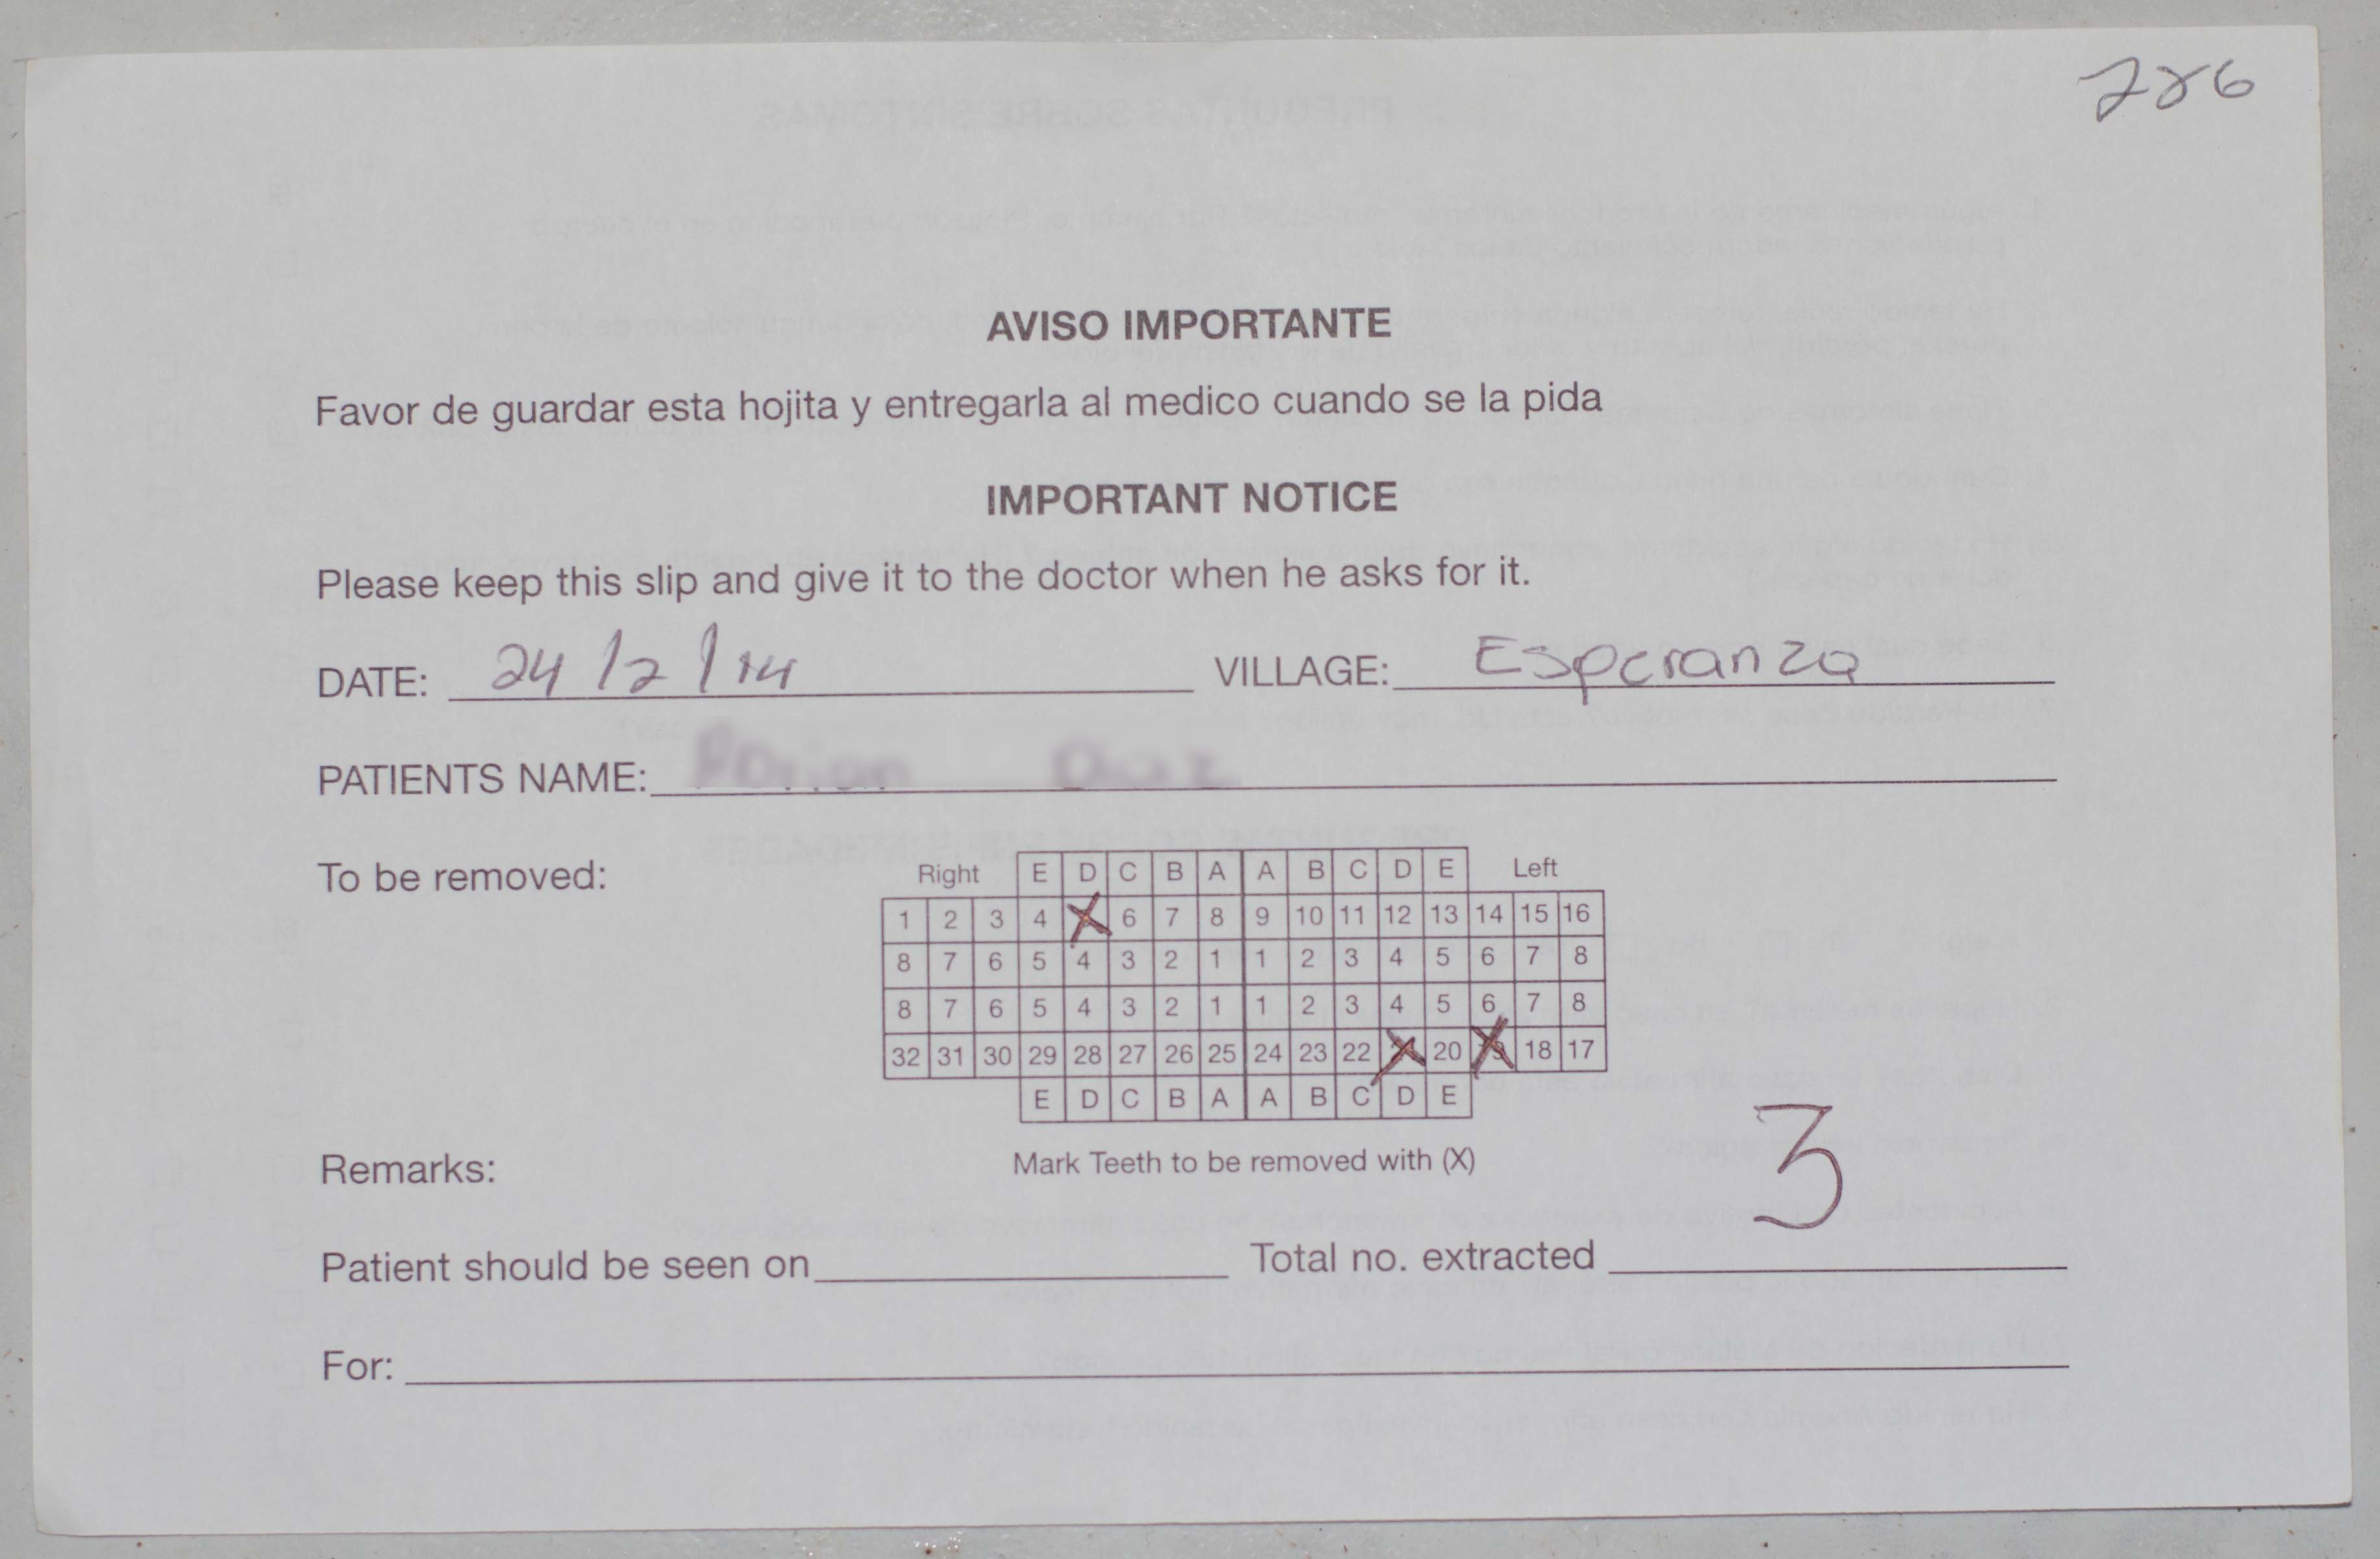 786
AVISO IMPORTANTE
Favor de guardar esta hojita y entregarla al medico cuando se la pida
IMPORTANT NOTICE
Please keep this slip and give it to the doctor when he asks for it.
DATE: 24/2/14 VILLAGE: Esperanza
PATIENTS NAME:
To be removed:
Right E D C B A A B C D E Left
1 2 3 4 X 6 7 8 9 10 11 12 13 14 15 16
8 7 6 5 4 3 2 1 1 2 3 4 5 6 7 8
8 7 6 5 4 3 2 1 1 2 3 4 5 6 7 8
32 31 30 29 28 27 26 25 24 23 22 X 20 X 18 17
E D C B A A B C D E
Remarks: Mark Teeth to be removed with (X)
Patient should be seen on Total no. extracted 3
For: